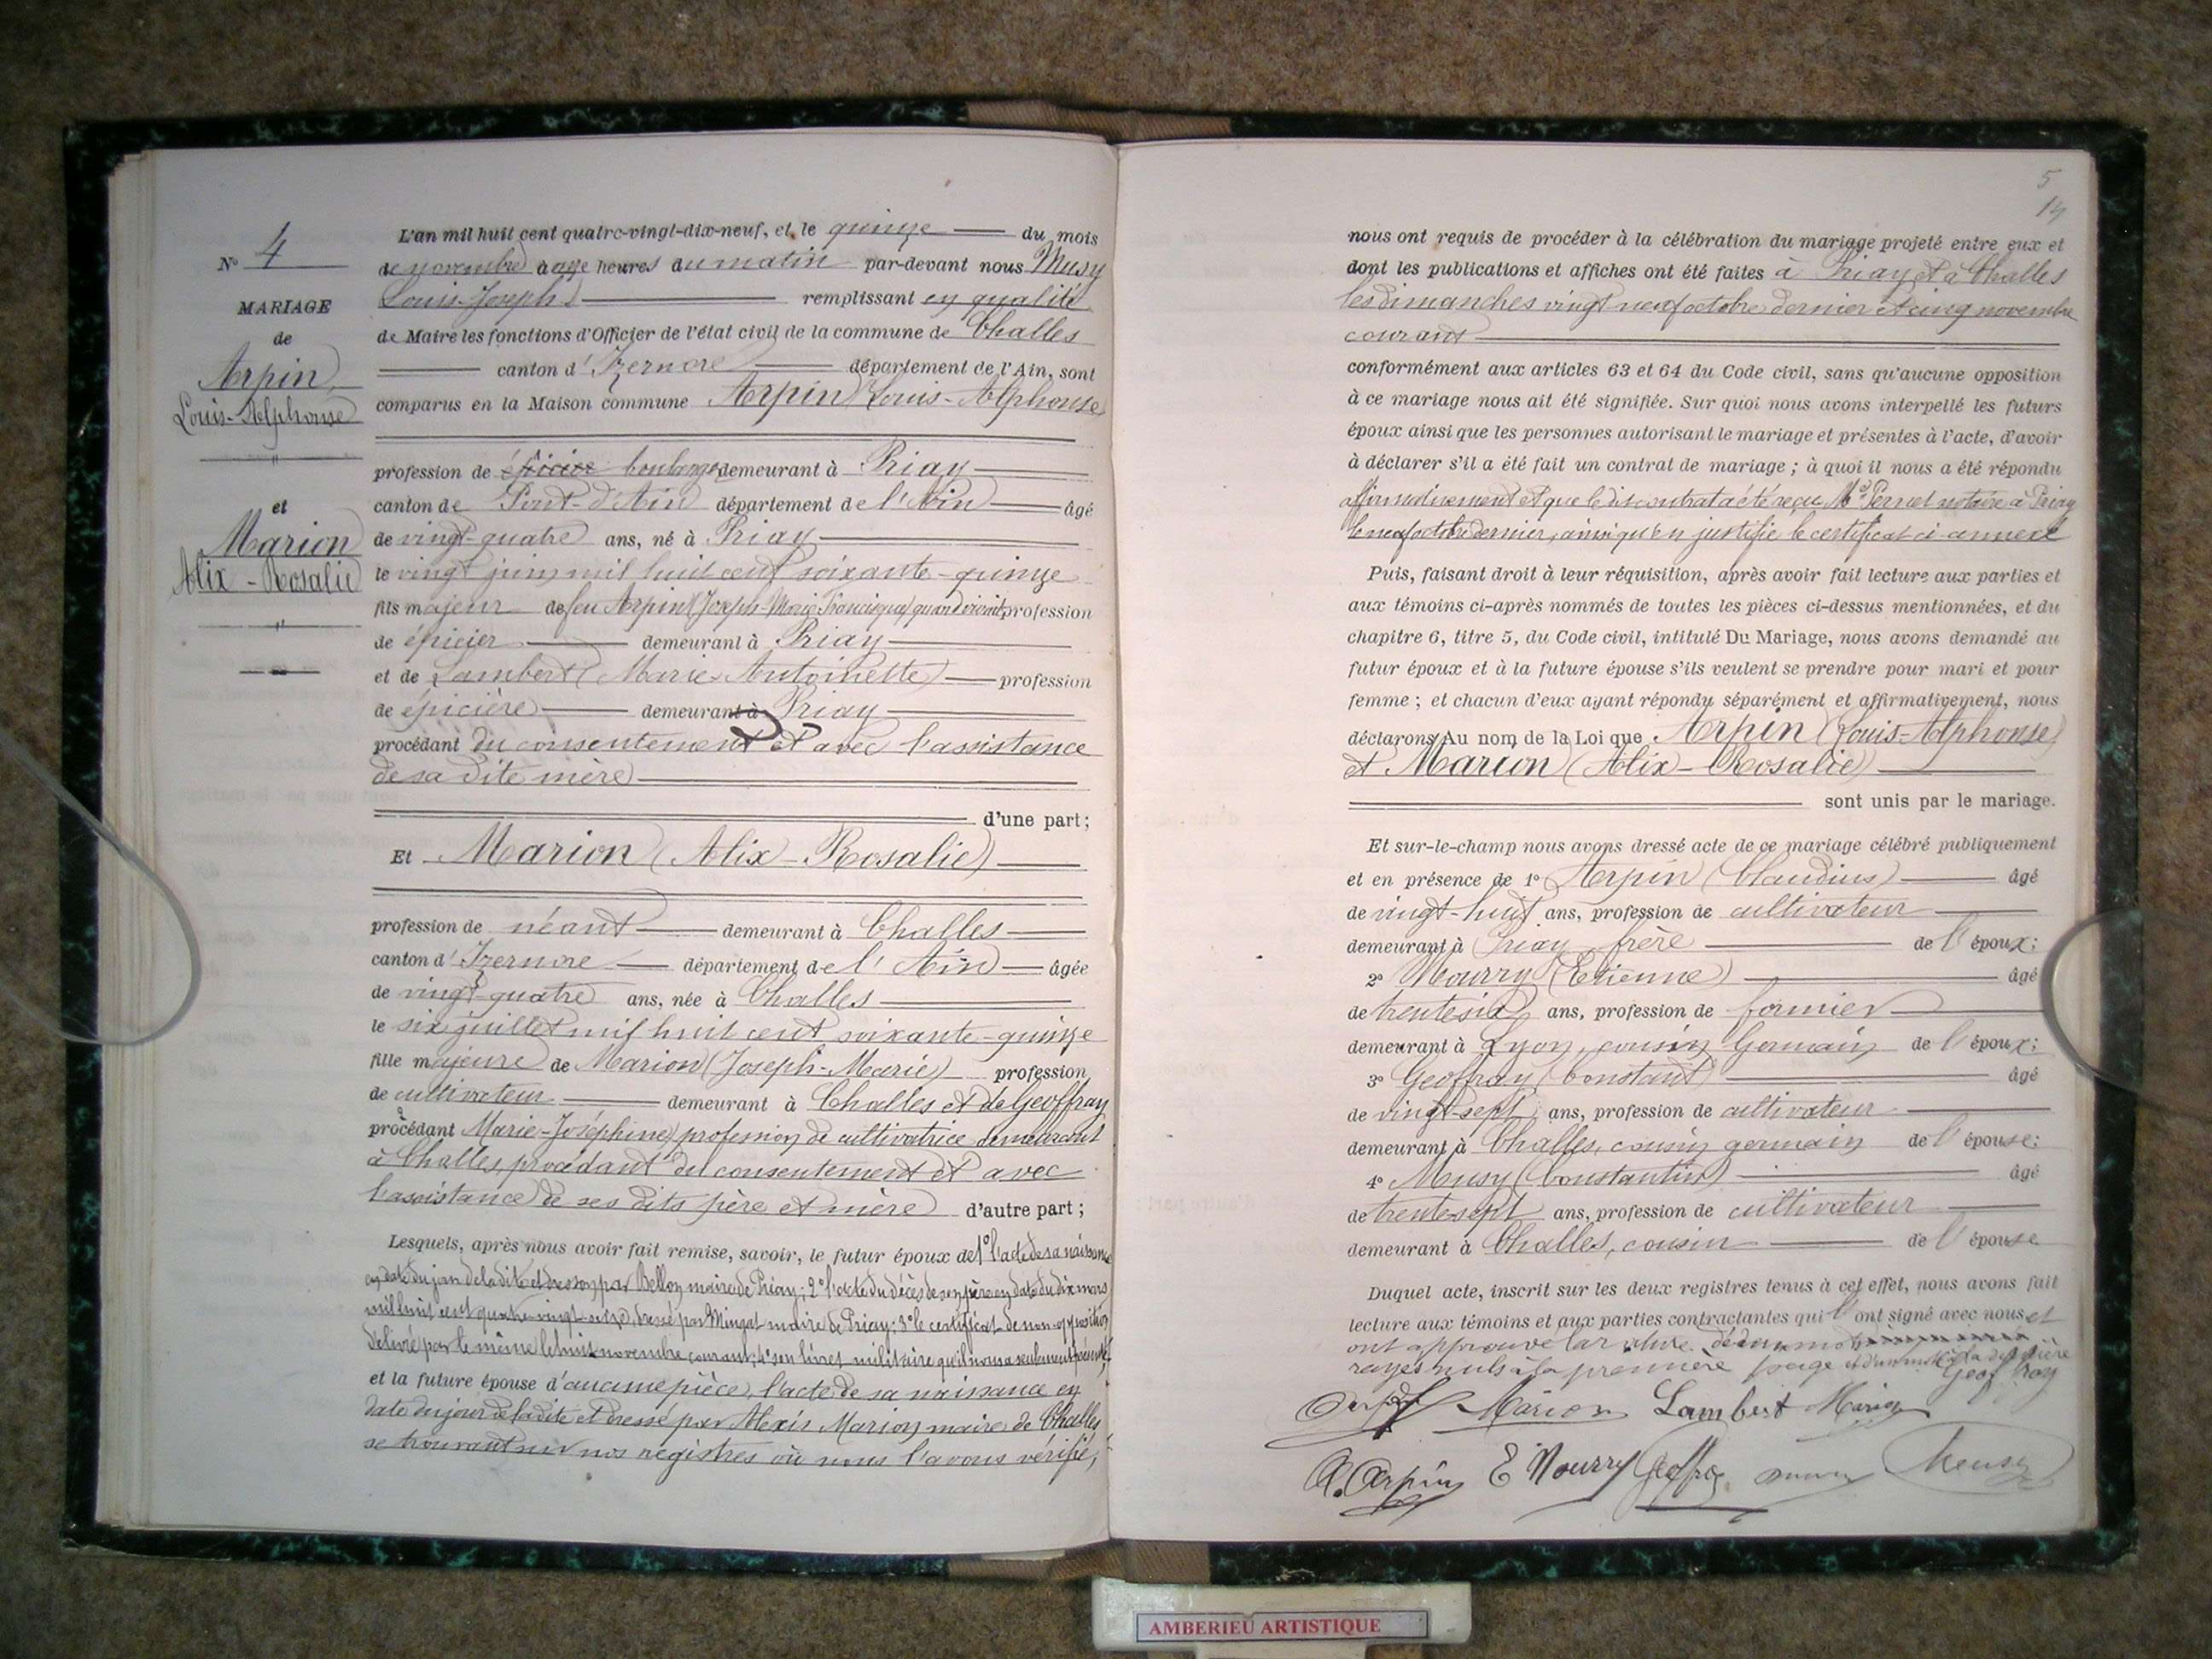 N° 4
MARIAGE
de
Arpin
Louis-Alphonse
et
Marion
Alix-Rosalie
L'an mil huit cent quatre-vingt-dix-neuf, et le quinze du mois
de novembre à onze heures du matin par-devant nous Musy
Louis-Joseph remplissant en qualité
de Maire les fonctions d'Officier de l'état civil de la commune de Challes
canton d'Izernore département de l'Ain, sont
comparus en la Maison commune Arpin (Louis-Alphonse)
profession de épicier boulanger demeurant à Priay
canton de Pont-d'Ain département de l'Ain âgé
de vingt-quatre ans, né à Priay
le vingt juin mil huit cent soixante-quinze
fils majeur de feu Arpin (Joseph-Marie Francisque) quand vivait profession
de épicier demeurant à Priay
et de Lambert (Marie-Antoinette) profession
de épicière demeurant à Priay
procédant du consentement et avec l'assistance
de sa dite mère
d'une part;
Et Marion (Alix-Rosalie)
profession de néant demeurant à Challes
canton d'Izernore département de l'Ain âgée
de vingt-quatre ans, née à Challes
le six juillet mil huit cent soixante-quinze
fille majeure de Marion (Joseph-Marie) profession
de cultivateur demeurant à Challes et de Geoffray
procédant Marie-Joséphine) profession de cultivatrice demeurant
à Challes, procédant du consentement et avec
l'assistance de ses dits père et mère d'autre part;
Lesquels, après nous avoir fait remise, savoir, le futur époux de 1° l'acte de sa naissance
en date du juin de la dite et dressé par Bellon maire de Priay; 2° l'acte du décès de son père en date du dix mars
mil huit cent quatre vingt seize, dressé par Mingat maire de Priay; 3° le certificat de non-opposition
délivré par le même le huit novembre courant; 4° son livret militaire qu'il nous a seulement présenté,
et la future épouse d'aucune pièce, l'acte de sa naissance en
date du jour de la dite et dressé par Alexis Marion maire de Challes
se trouvant sur nos registres où nous l'avons vérifié,
5
14
nous ont requis de procéder à la célébration du mariage projeté entre eux et
dont les publications et affiches ont été faites à Priay et à Challes
les dimanches vingt neuf octobre dernier et cinq novembre
courant
conformément aux articles 63 et 64 du Code civil, sans qu'aucune opposition
à ce mariage nous ait été signifiée. Sur quoi nous avons interpellé les futurs
époux ainsi que les personnes autorisant le mariage et présentes à l'acte, d'avoir
à déclarer s'il a été fait un contrat de mariage; à quoi il nous a été répondu
affirmativement et que le dit contrat a été reçu Me Perret notaire à Priay
le neuf octobre dernier, ainsi qu'en justifie le certificat ci-annexé
Puis, faisant droit à leur réquisition, après avoir fait lecture aux parties et
aux témoins ci-après nommés de toutes les pièces ci-dessus mentionnées, et du
chapitre 6, titre 5, du Code civil, intitulé Du Mariage, nous avons demandé au
futur époux et à la future épouse s'ils veulent se prendre pour mari et pour
femme; et chacun d'eux ayant répondu séparément et affirmativement, nous
déclarons Au nom de la Loi que Arpin (Louis-Alphonse)
et Marion (Alix-Rosalie)
sont unis par le mariage.
Et sur-le-champ nous avons dressé acte de ce mariage célébré publiquement
et en présence de 1° Arpin (Claudius) âgé
de vingt-huit ans, profession de cultivateur
demeurant à Priay frère de l'époux;
2° Nourry (Etienne) âgé
de trente six ans, profession de
demeurant à Lyon, cousin germain de l'époux;
3° Geoffray (Constant) âgé
de vingt-sept ans, profession de cultivateur
demeurant à Challes, cousin germain de l'épouse;
4° Musy (Constantin) âgé
de trente-sept ans, profession de cultivateur
demeurant à Challes, cousin de l'épouse
Duquel acte, inscrit sur les deux registres tenus à cet effet, nous avons fait
lecture aux témoins et aux parties contractantes qui l'ont signé avec nous et
ont approuvé la rature
rayés nuls à la première page
Geoffray
Marion Lambert Marion
C. Arpin E Nourry Geoffray Musy
AMBERIEU ARTISTIQUE